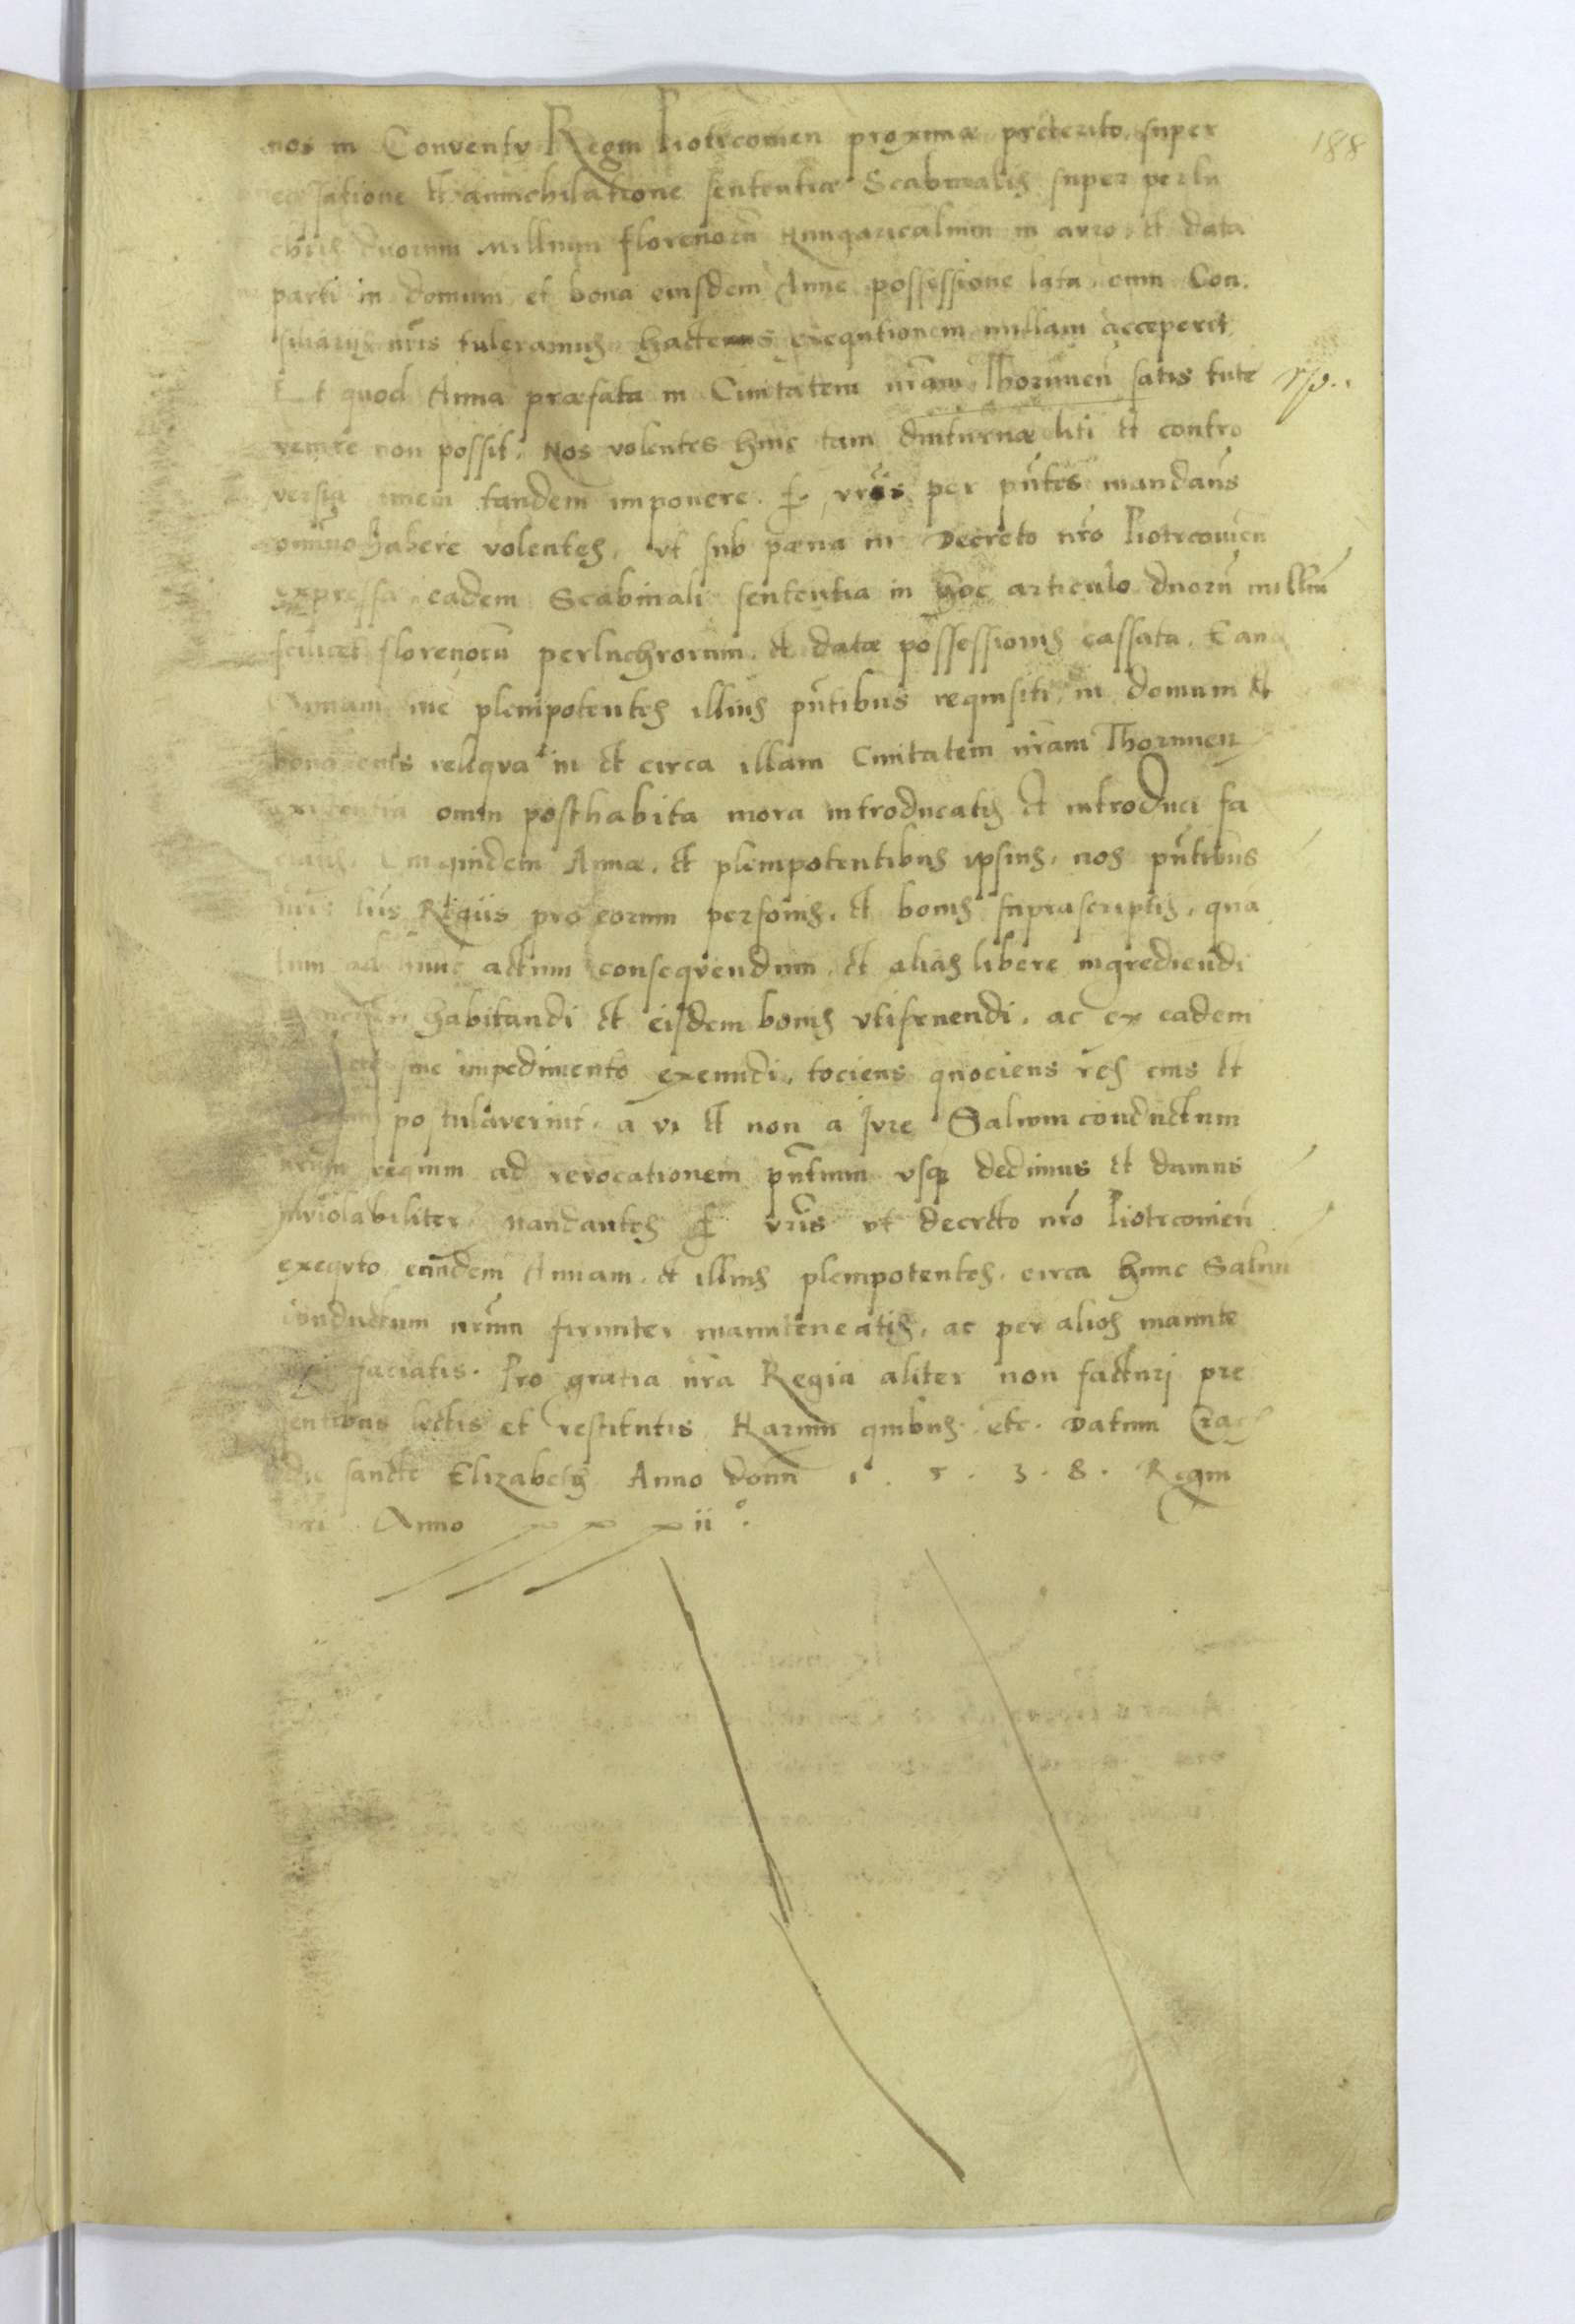 188
nos in Conventu Regni Piotrcovien proximæ preterito, super
cassatione et annichilatione sententiæ Scabinalis super perlu
chris duorum millium florenorū Hungaricalium in auro, et data
parti in domum et bona eiusdem Anne possessione lata cum Con.
siliarijs nr̄is tuleramus hactenus exequtionem nullam acceperit
Et quod Anna præfata in Ciuitatem nr̄am Thorunien̄ satis tute
venire non possit. Nos volentes huic tam diuturnæ liti et contro
versiæ finem tandem imponere. f. vr̄is per pn̄tes mandaūs
omnino habere volentes, vt sub pœna in Decreto nr̄o Piotrcovien̄
expressa eadem Scabinali sententia in hoc articulo duorū milliū
scilicet florenorū perluchrorum et datæ possessionis cassata. Eand
Annam siue plenipotentes illius pn̄tibus requisiti, in domum et
bona eius reliqva in et circa illam Ciuitatem nr̄am Thorunien
existentia omni posthabita mora introducatis et introduci fa
ciatis. Cui quidem Annæ, et plenipotentibus ipsius, nos pn̄tibus
nr̄is lr̄is Regiis pro eorum personis, et bonis suprascriptis, quā
tum ad hunc actum conseqvendum, et alias libere ingrediendi
habitandi et eisdem bonis vtifruendi, ac ex eadem
sine impedimento exeundi, tociens quociens res eius et
postulaverint, a vi et non a Jvre Saluum conductum
nr̄um regium ad revocationem pn̄tium vsq; dedimus et damus
inviolabiliter, mandantes f. vr̄is vt decreto nr̄o Piotrcouien̄
exeqvto eandem Annam, et illius plenipotentes, circa hunc Saluū
conductum nr̄um firmiter manuteneatis, ac per alios manute
neri faciatis. Pro gratia nr̄a Regia aliter non facturj pre
sentibus lectis et restitutis Harum quibus etc. Datum Crac
die sancte Elizabeth Anno domi 1. 5. 3. 8. Regni
nr̄i Anno xxxii°.